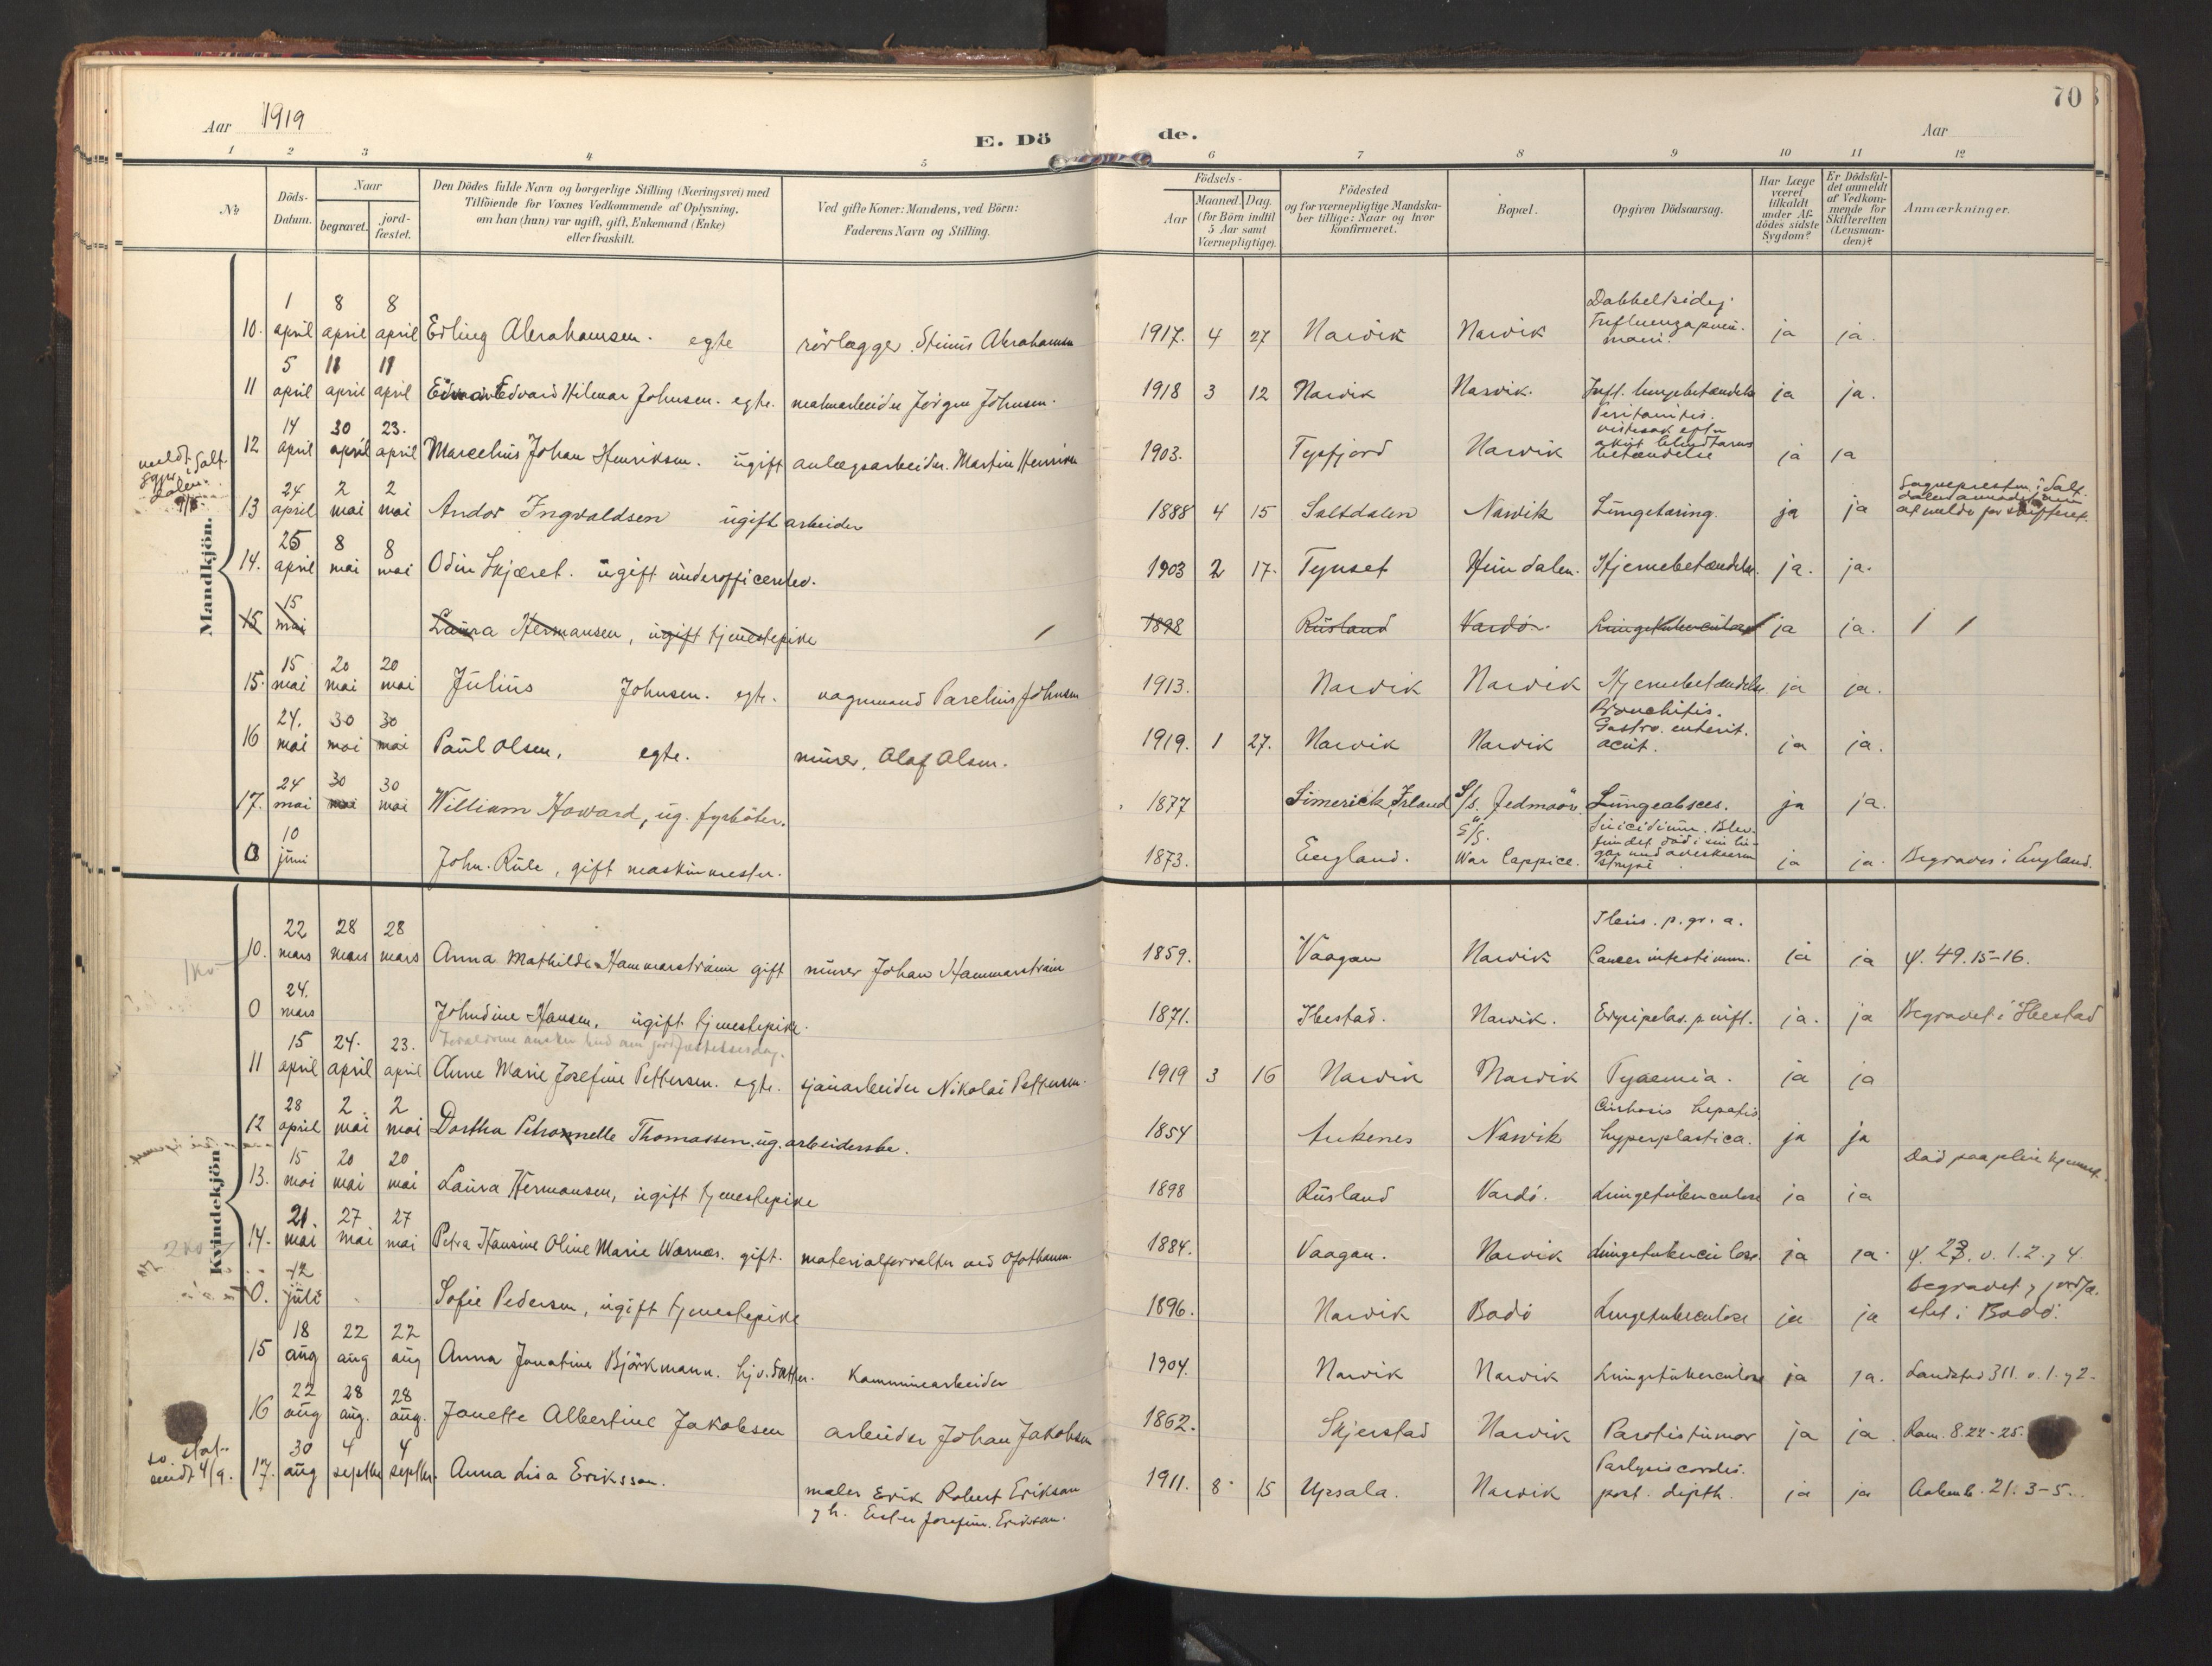 Aar 1919
E. Dö de.
Aar
70
1 2 3 4 5 6 7 8 9 10 11 12
No
Döds-Datum.
Naar
begravet.
jord-fæstet.
Den Dödes fulde Navn og borgerlige Stilling (Næringsvei) med
Tilföiende for Voxnes Vedkommende af Oplysning,
om han (hun) var ugift, gift, Enkemand (Enke)
eller fraskilt.
Ved gifte Koner: Mandens, ved Börn:
Faderens Navn og Stilling.
Födsels-
Aar
Maaned. Dag.
(for Börn indtil
5 Aar samt
Værnepligtige).
Födested
og for værnepligtige Mandska-
ber tillige: Naar og hvor
konfirmeret.
Bopæl.
Opgiven Dödsaarsag.
Har Læge
været
tilkaldt
under Af-
dödes sidste
Sygdom?
Er Dödsfal-
det anmeldt
af Vedkom-
mende for
Skifteretten
(Lensman-
den)?
Anmærkninger.
Mandkjön.
10. 1 april 8 april 8 april Erling Abrahamsen. egte rörlægger. Abrahamsen 1917. 4 27 Narvik Narvik Dobbeltsidig Influenzapneumoni. ja ja.
11 5 april 11 april 11 april Edvard Hilmar Johnsen. egte. malmarbeider Jörgen Johnsen. 1918 3 12 Narvik Narvik. Infl. lungebetændelse ja ja.
12 14 april 30 april 23. april Marcelius Johan Henriksen. ugift anlægsarbeider. Martin Henriksen 1903. Tysfjord Narvik Peritonitis. akut blindtarms betændelse ja ja
13 24 april 2 mai 2 mai Andor Ingvaldsen ugift arbeider 1888 4 15 Saltdalen Narvik Lungetæring. ja ja
14. 25 april 8 mai 8 mai Odin Skjæret. ugift underofficerelev. 1903 2 17. Tynset Hundalen. Hjernebetændelse. ja. ja.
15 15 mai Laura Hermansen, ugift tjenestepike 1898 Rusland Vardö. Lungetuberculose ja ja.
15. 15 mai 20 mai 20 mai Julius Johnsen. egte. vognmand Parelius Johnsen 1913. Narvik Narvik Hjernebetændelse. ja ja.
16 24. mai 30 mai 30 mai Paul Olsen, egte. murer, Olaf Olsen. 1919. 1 27. Narvik Narvik Bronchitis. Gastro. enterit. acut. ja ja.
17. 24 mai 30 mai 30 mai William Howard, ug. fyrböter. 1877 Limerick, Irland S/S. Jedmoor. Lungeabsces. ja ja.
0 10 juni John. Rule, gift maskinmester. 1873. England. S/S. War Cappice. Suicidium. Blev fundet död i sin ja ja. Begraves i England.
Kvindekjön
10. 22 mars 28 mars 28 mars Anna Mathilde Hammarström gift murer Johan Hammarström 1859. Vaagan Narvik Ileus. p. gr. a. Cancer intestinum. ja ja ψ. 49. 15-16.
0 24. mars Johndine Hansen, ugift tjenestepike. 1871. Ibestad. Narvik. Erysipelas. p. ja. ja Begravet i Ibestad
11 15 april 24. april 23. april Anne Marie Josefine Pettersen. egte. sjauarbeider Nikolai Pettersen. 1919 3 16 Narvik Narvik Pyaemia. ja ja
12 28 april 2 mai 2 mai Dorthea Petronnelle Thomassen. ug. arbeiderske. 1854 Ankenes Narvik Cirrhosis hepatis hyperplastica. ja ja
13. 15 mai 20 mai 20 mai Laura Hermansen, ugift tjenestepike 1898 Rusland Vardö. Lungetuberculose ja ja Död paa pleiehjemmet.
14. 21. mai 27 mai 27 mai Petra Hansine Oline Marie Wærnes. gift. materialforvalter ved Ofotbanen. 1884. Vaagan. Narvik Lungetuberculose. ja ja. ψ. 23. v. 1. 2. 4.
0. 12 juli Sofie Pedersen, ugift tjenestepike 1896. Narvik Bodö Lungetuberculose ja ja Begravet jordfæstet i Bodö.
15 18 aug 22 aug 22 aug Anna Jonatine Björkmann. hjv. datter. Kommunearbeider 1904. Narvik Narvik Lungetuberculose ja ja. Landstad 311. v. 1. 2.
16 22 aug 28 aug. 28 aug. Janette Albertine Jakobsen arbeider Johan Jakobsen 1862. Skjerstad Narvik Parotistumor ja ja Rom. 8. 22-25.
17. 30 aug 4 septbr 4 septbr. Anna Lisa Eriksson. maler Erik Robert Erikson h. Ester Josefine. Erikson. 1911. 8 15 Upsala. Narvik Parlysis cordis. post. dipth. ja ja Aabenb. 21. 3-5.